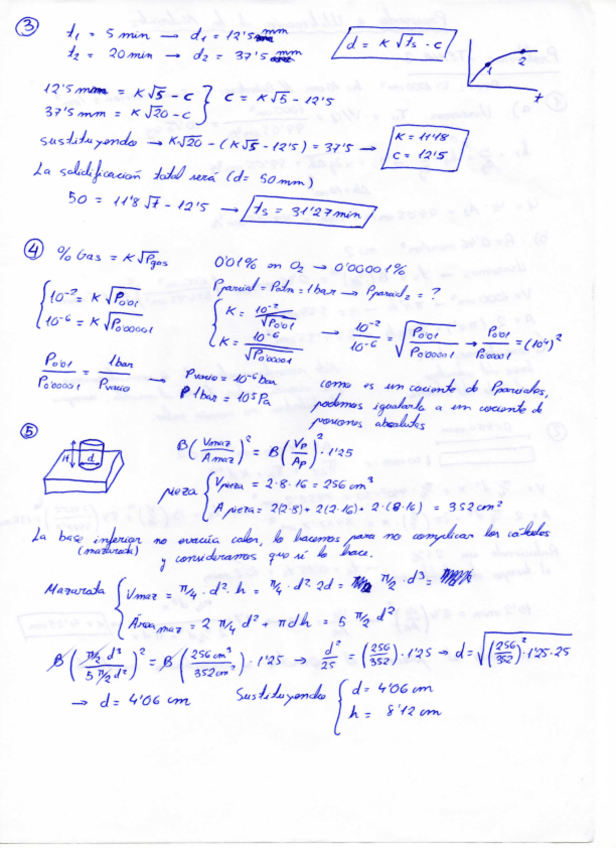 ③ t₁ = 5 min → d₁ = 12'5 mm
t₂ = 20 min → d₂ = 37'5 mm
d = K √ts - c
1 2
t
12'5 mm = K√5 - c
37'5 mm = K√20 - c } c = K√5 - 12'5
sustituyendo → K√20 - (K√5 - 12'5) = 37'5 → K = 11'18
c = 12'5
La solidificación total será (d = 50 mm)
50 = 11'8 √t - 12'5 → ts = 31'27 min
④ % Gas = K√Pgas 0'01% en O₂ → 0'00001%
Pparcial = Patm = 1 bar → Pparcial₂ = ?
{ 10⁻² = K √P0'01
10⁻⁶ = K √P0'00001
{ K = 10⁻²/√P0'01
K = 10⁻⁶/√P0'00001 → 10⁻²/10⁻⁶ = √P0'01/P0'00001 → P0'01/P0'00001 = (10⁴)²
P0'01/P0'00001 = 1 bar/Pvacio → Pvacio = 10⁻⁸ bar
1 bar = 10⁵ Pa
como es un cociente de Pparciales,
podemos igualarla a un cociente de
presiones absolutas
⑤ H d
B (Vmaz/Amaz)² = B (Vp/Ap)² · 1'25
pieza { Vpieza = 2·8·16 = 256 cm³
A pieza = 2(2·8) + 2(2·16) + 2·(8·16) = 352 cm²
La base inferior no evacúa calor, lo hacemos para no complicar los cálculos
(mazarota) y consideramos que sí lo hace.
Mazarota { Vmaz = π/4 · d² · h = π/4 · d² · 2d = π/2 · d³
Áreamaz = 2 π/4 d² + π d h = 5 π/2 d²
B (π/2 d³/5 π/2 d²)² = B (256 cm³/352 cm²)² · 1'25 → d²/25 = (256/352) · 1'25 → d = √(256/352)² · 1'25 · 25
→ d = 4'06 cm Sustituyendo { d = 4'06 cm
h = 8'12 cm